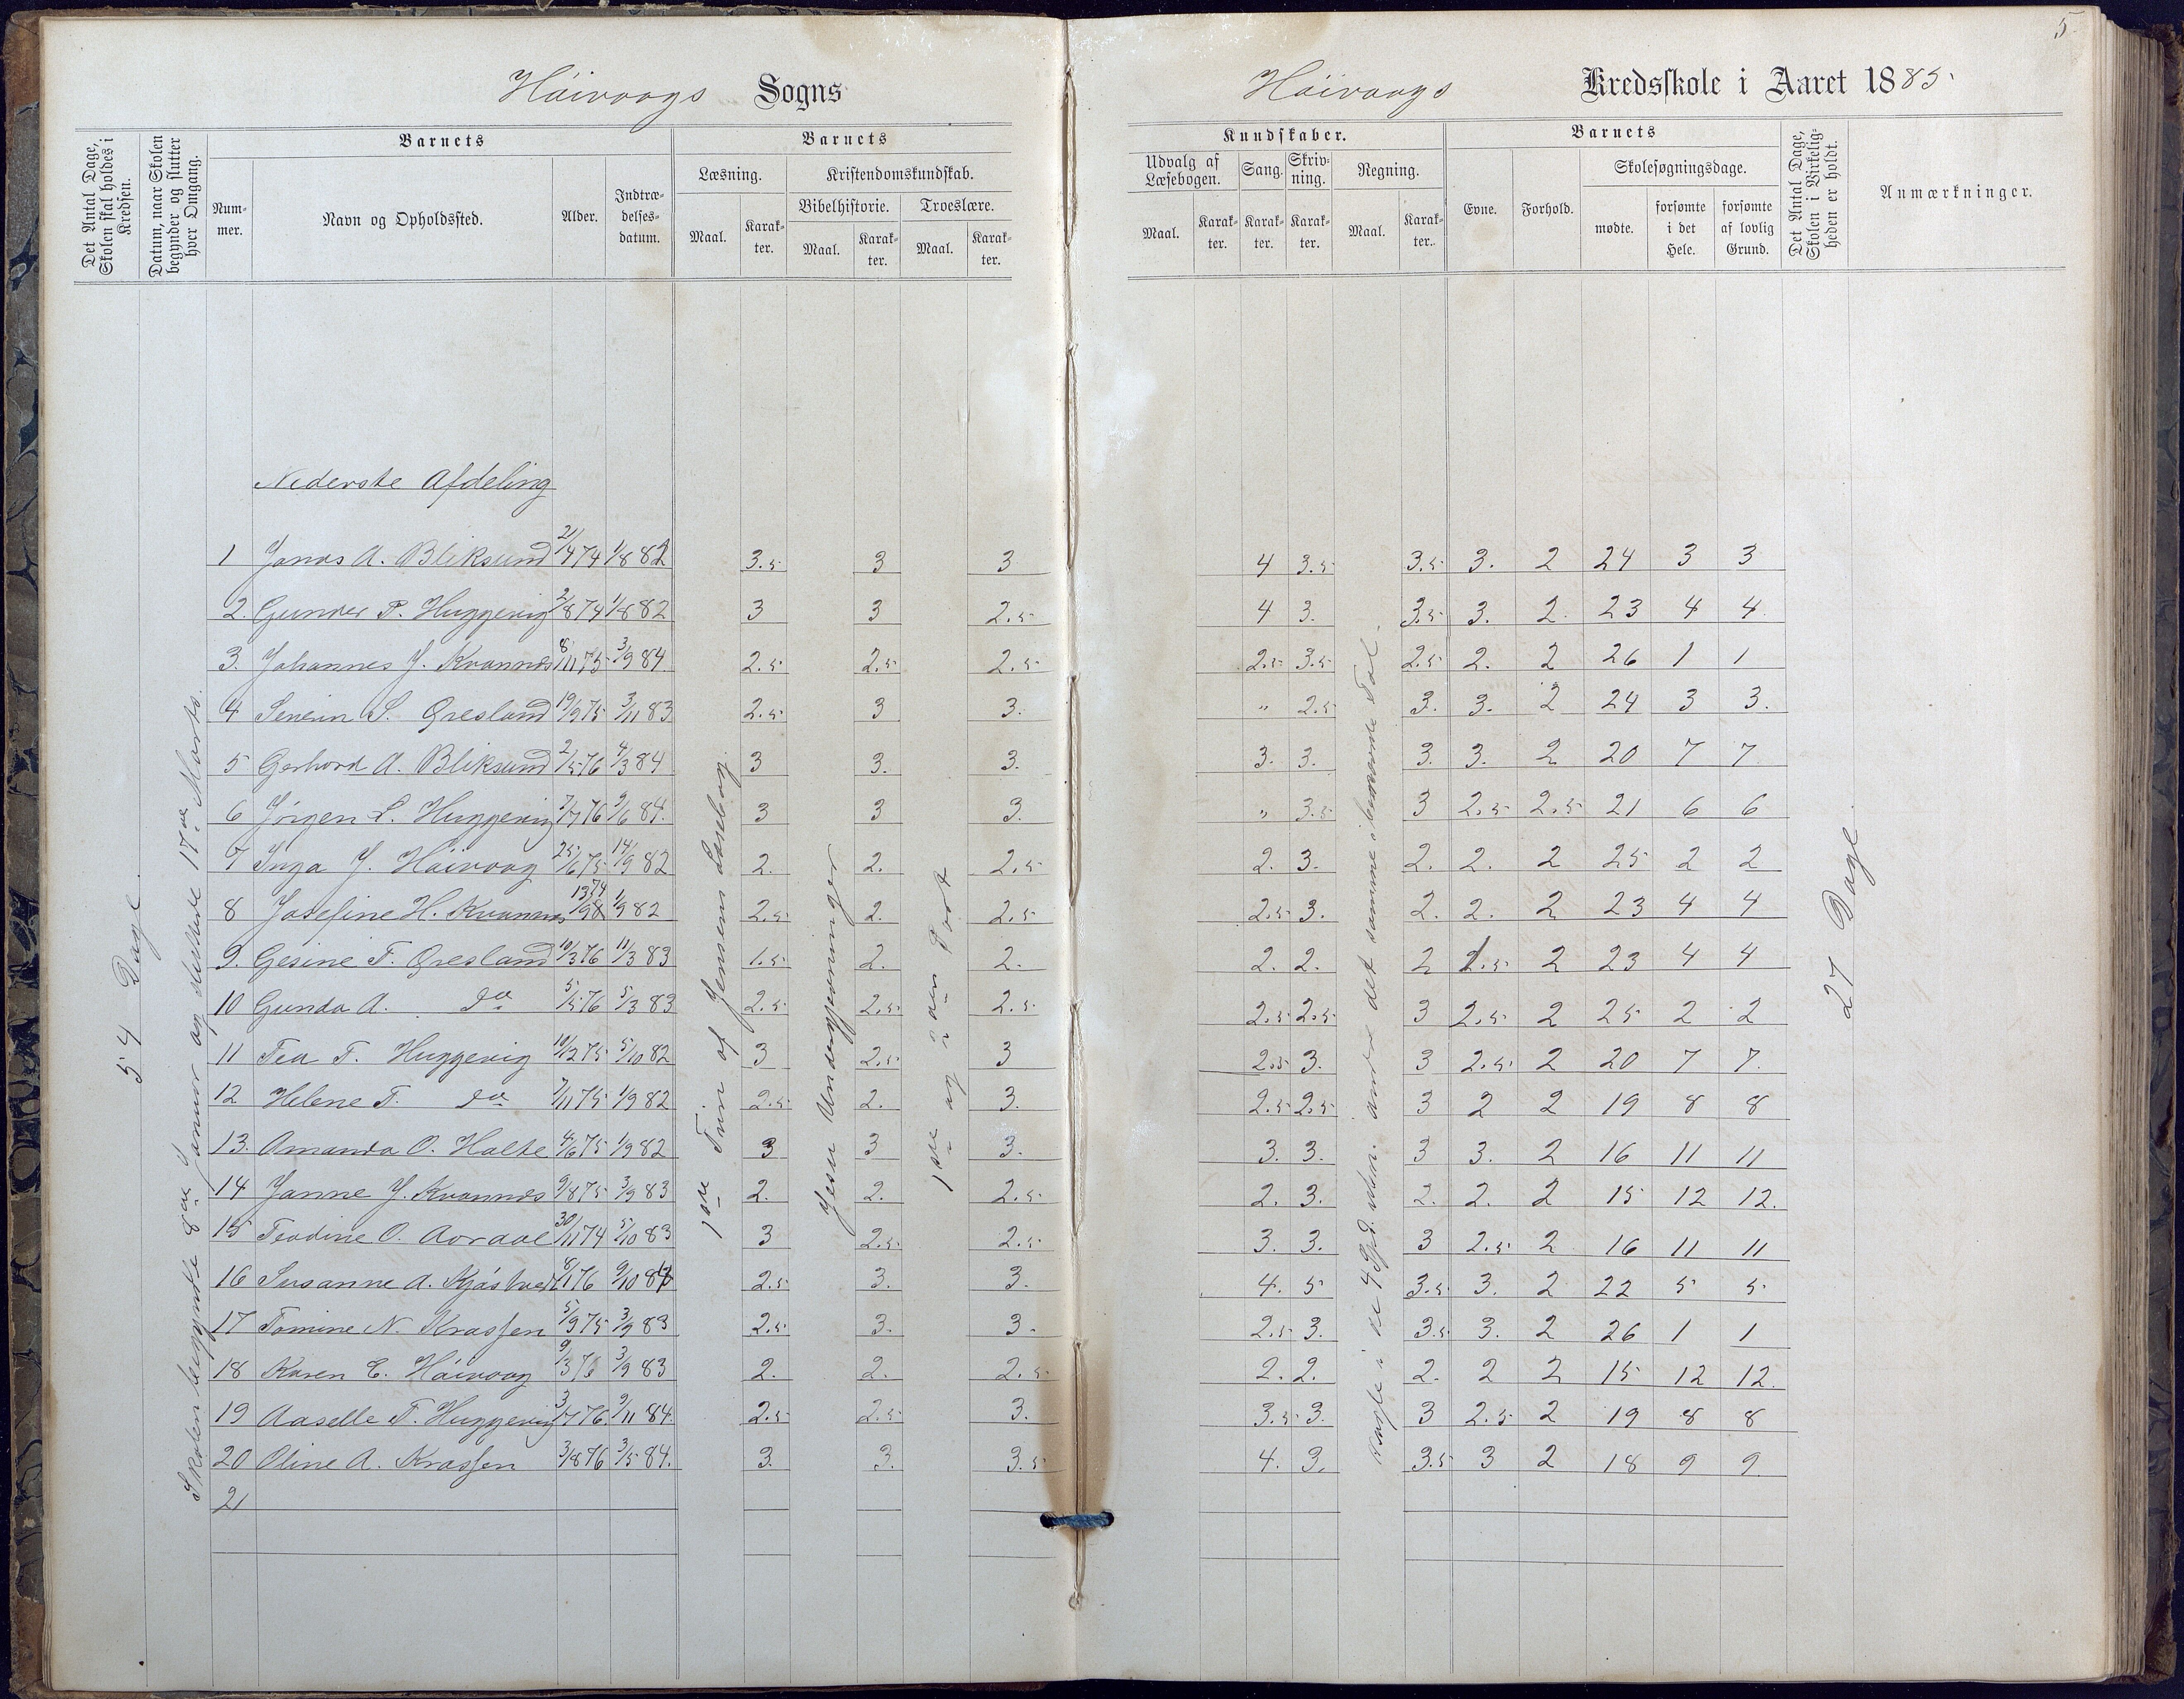 5
Höivaags Sogns
Höivaags Kredsskole i Aaret 1885
Det Antal Dage, Skolen skal holdes i Kredsen.
Datum, naar Skolen begynder og slutter hver Omgang.
Barnets
Num-mer.
Navn og Opholdssted.
Alder.
Indtræ-delses-datum.
Barnets
Læsning.
Maal.
Karak-ter.
Kristendomskundskab.
Bibelhistorie.
Maal.
Karak-ter.
Troeslære.
Maal.
Karak-ter.
Kundskaber.
Udvalg af Læsebogen.
Maal.
Karak-ter.
Sang.
Karak-ter.
Skriv-ning.
Karak-ter.
Regning.
Maal.
Karak-ter.
Barnets
Evne.
Forhold.
Skolesøgningsdage.
mødte.
forsømte i det Hele.
forsømte af lovlig Grund.
Det Antal Dage, Skolen i Virkelig-heden er holdt.
Anmærkninger.
54 Dage.
Skolen begyndte 8de Januar og sluttede 17de Marts.
1ste Trin af Jensens Læsebog.
Jesu Undergjerninger
1ste og 2den Part
27 Dage.
Nederste Afdeling
1 Jonas A. Bliksund 21/4 74 1/8 82 3.5 3 3 4 3.5 3.5 3. 2 24 3 3
2. Gunder P. Huggevig 2/8 74 1/8 82 3 3 2.5 4 3. 3.5 3. 2. 23 4 4.
3. Johannes J. Kvannes 8/11 75 3/9 84 2.5 2.5 2.5 2.5 3.5 2.5 2. 2 26 1 1
4 Senein S. Øresland 19/9 75 3/11 83 2.5 3 3. " 2.5 3. 3. 2 24 3 3.
5 Gerhard A. Bliksund 2/5 76 4/3 84 3 3. 3. 3. 3. 3. 3. 2 20 7 7
6 Jörgen L. Huggevig 7/7 76 9/6 84. 3 3 3. " 3.5 3 2.5 2.5 21 6 6
7 Inga J. Höivaag 25/6 75 14/9 82 2. 2. 2.5 2. 3. 2. 2. 2 25 2 2
8 Josefine H. Kvannes 13/9 74 1/9 82 2.5 2. 2.5 2.5 3. 2. 2. 2 23 4 4
9. Gesine T. Øresland 10/3 76 11/3 83 1.5 2. 2. 2. 2. 2 1.5 2 23 4 4
10 Gunda A. do 5/5 76 5/3 83 2.5 2.5 2.5 2.5 2.5 3 2.5 2 25 2 2
11 Tea T. Huggevig 10/12 75 5/10 82 3 2.5 3 2.5 3. 3 2.5 2 20 7 7.
12 Helene T. do 7/11 75 1/9 82 2.5 2. 3. 2.5 2.5 3 2 2 19 8 8
13. Amanda O. Holte 4/6 75 1/9 82 3 3 3. 3. 3. 3 3. 2 16 11 11
14 Janne J. Kvannes 9/8 75 3/9 83 2. 2. 2.5 2. 3. 2. 2. 2 15 12 12.
15 Teodine O. Aoraal 30/11 74 5/10 83 3 2.5 2.5 3. 3. 3 2.5 2 16 11 11
16 Susanne A. Kjöstved 8/1 76 9/10 84 2.5 3. 3. 4. 5 3.5 3. 2 22 5 5
17 Tomine N. Krossen 5/9 75 3/9 83 2.5 3. 3. 2.5 3. 3.5 3. 2 26 1 1
18 Karen E. Höivaag 9/3 76 3/9 83 2. 2. 2.5 2. 2. 2. 2 2 15 12 12.
19 Aaselle T. Huggevig 3/7 76. 9/11 84. 2.5 2.5 3. 3.5 3. 3 2.5 2 19 8 8
20 Oline A. Krossen 3/8 76 3/5 84. 3. 3. 3.5 4. 3. 3.5 3 2 18 9 9.
21